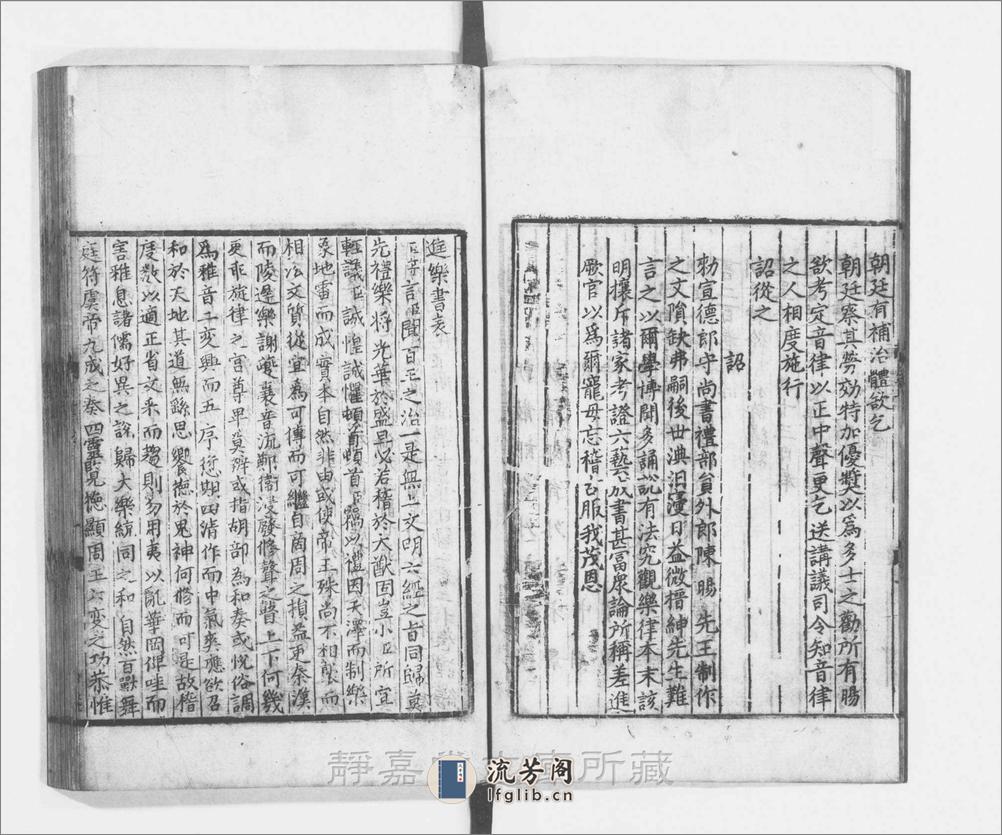 朝廷有補治體欲乞
朝廷察其勞効特加優奬以為多士之勸所有暘
欲考定音律以正中聲更乞送講議司令知音律
之人相度施行
詔從之
詔
勑宣德郎守尚書禮部員外郎陳暘先王制作
之文隤缺弗嗣後世淟汩漫日益微搢紳先生難
言之以爾學博聞多誦説有法究觀樂律本末該
明攘斥諸家考證六藝成書甚冨衆論所稱差進
厥官以為爾寵毋忘稽古服我茂恩
進樂書表
臣暘言臣聞百王之治一是無上文明六經之旨同歸莫
先禮樂將光華於盛旦必若稽於大猷固豈小臣所宜
輕議臣誠惶誠懼頓首頓首臣竊以禮因天澤而制樂
象地雷而成實本自然非由或使帝王殊尚不相襲而
相公文質從宜為可傳而可繼自商周之損益更秦漢
而陵遲樂謝夔襄音流鄭衛浸廢修聲之瞽上下何幾
更乖旋律之宫尊卑莫辨或指胡部為和奏或悦俗調
為雅音二變興而五序愆期四清作而中氣爽應欲召
和於天地其道無繇思饗德於鬼神何修而可是故稽
度數以適正省文采而趨則勿用夷以亂華罔俾哇而
害雅息諸儒好異之説歸大樂統同之和自然百獸舞
庭符虞帝九成之奏四靈覽德顯周王六變之功恭惟
靜嘉堂文庫所藏
流芳阁
lfglib.cn